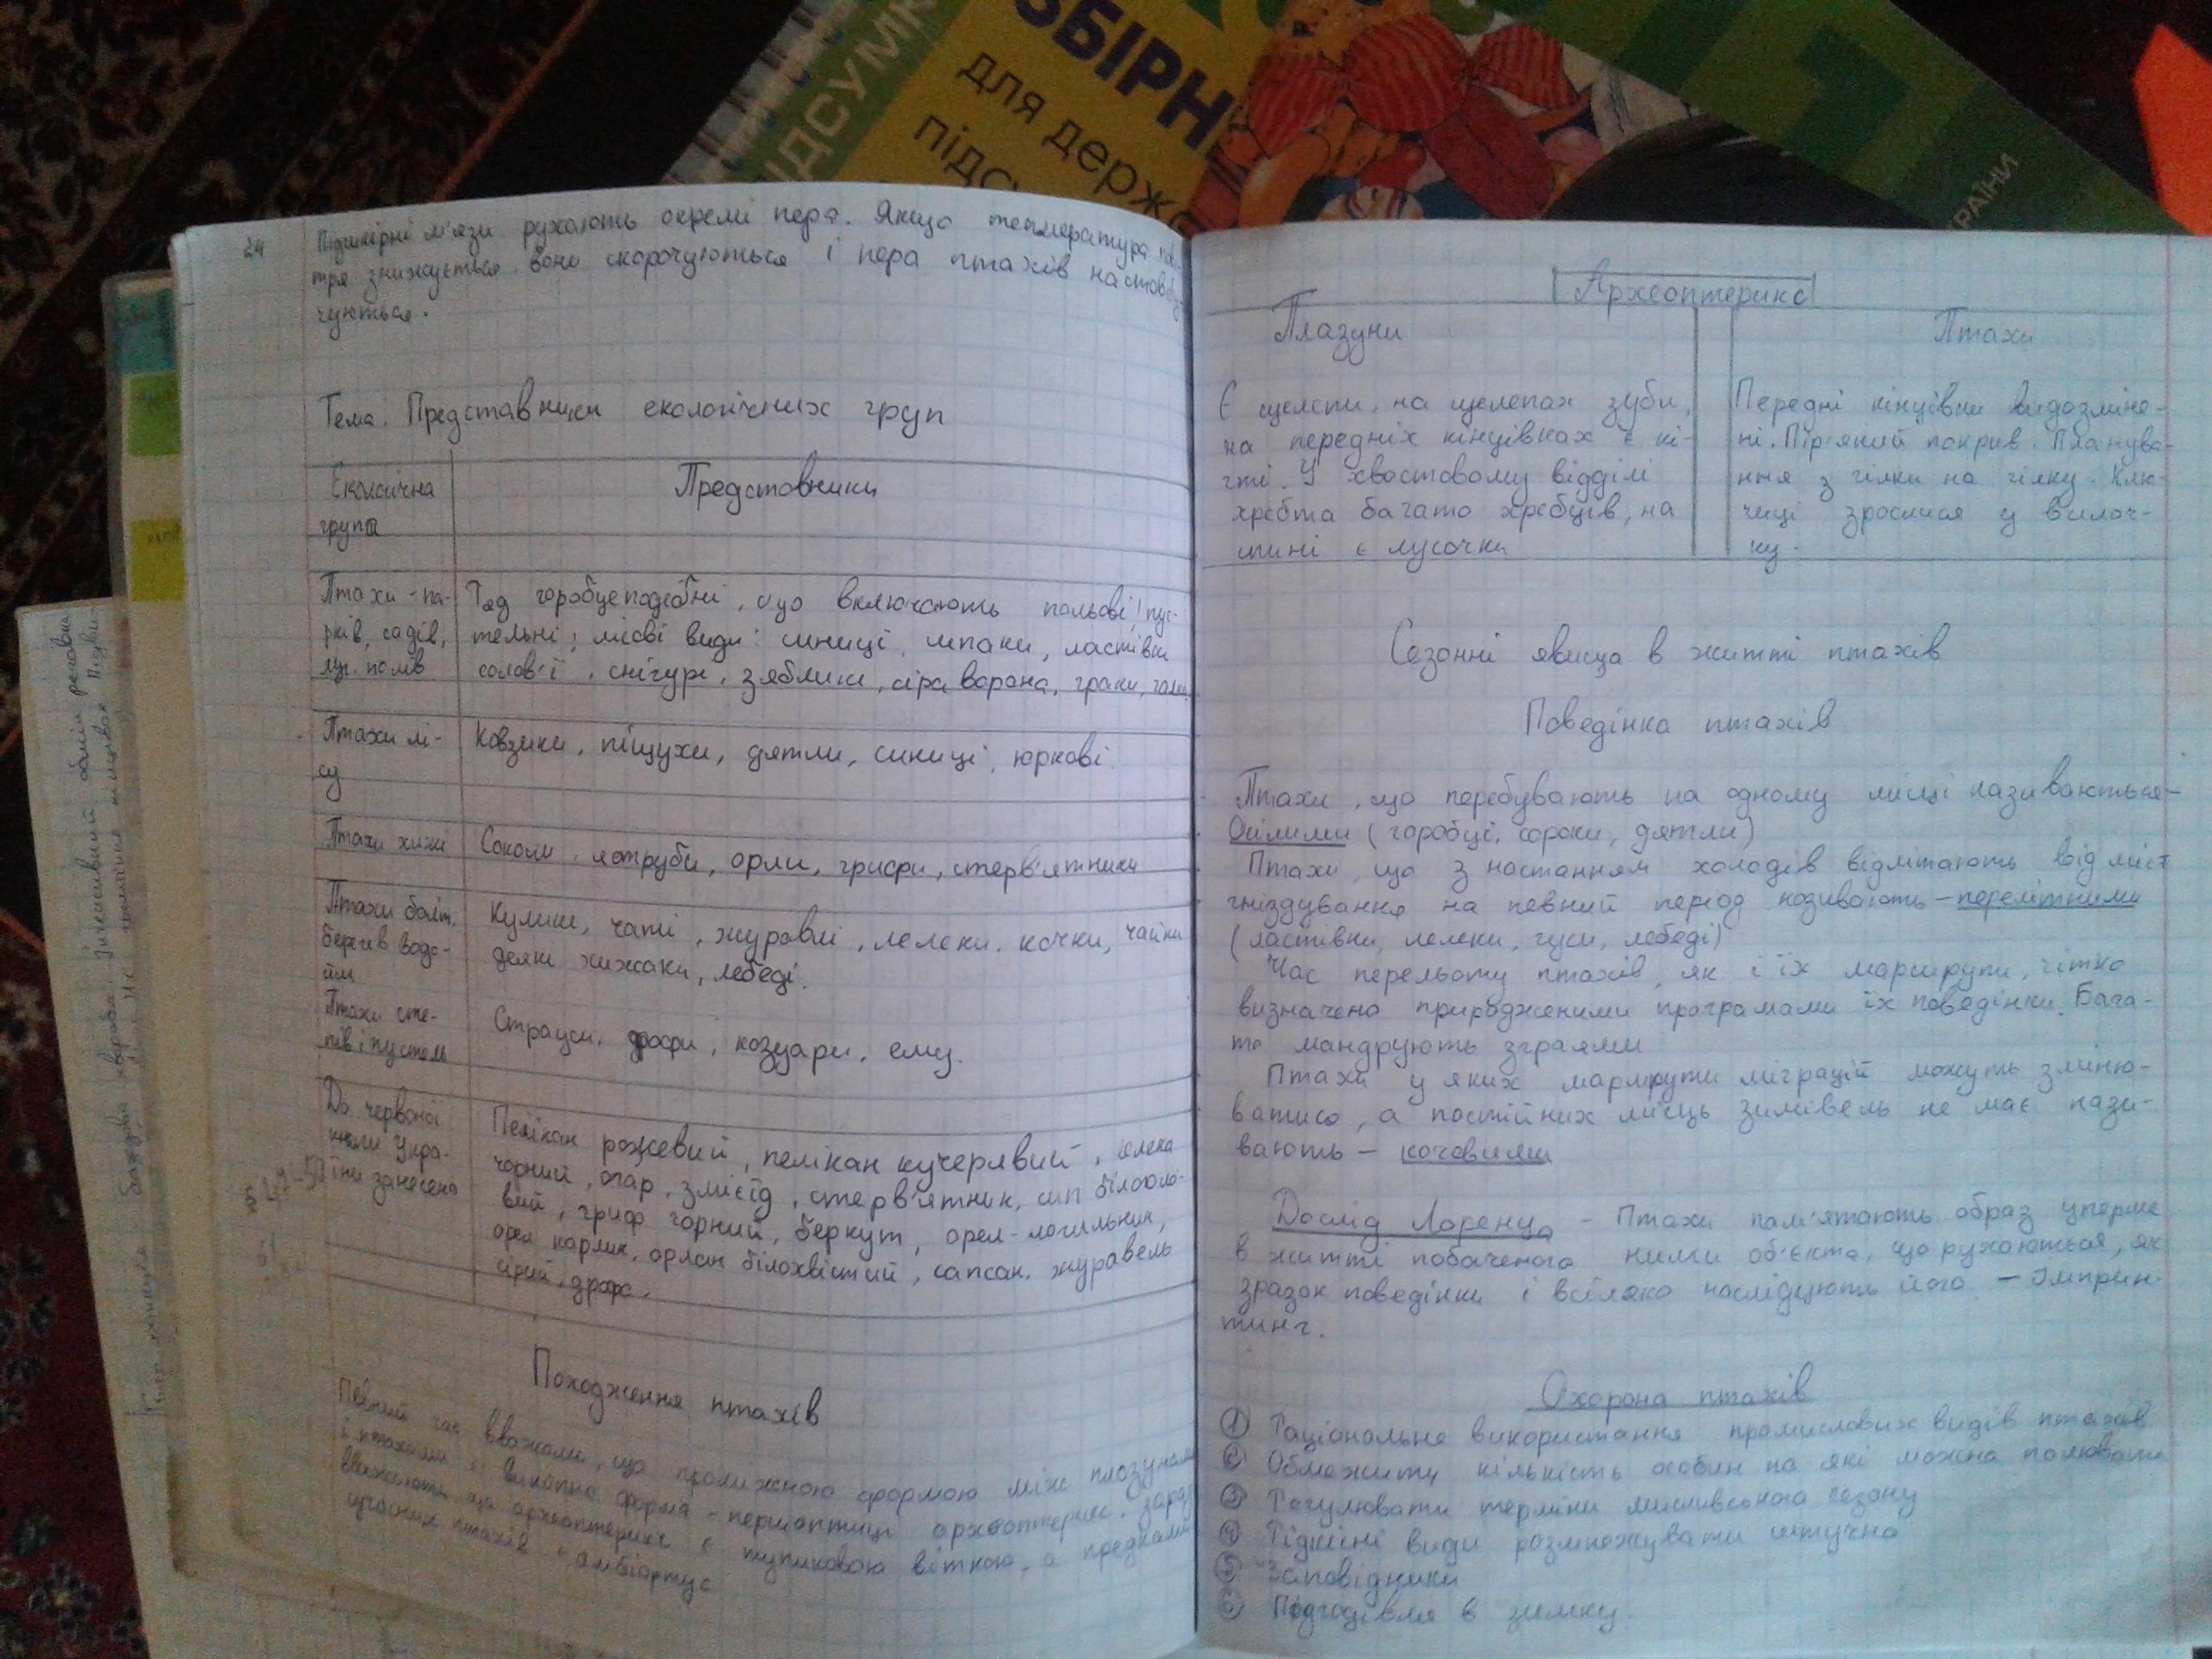 ЗБІРН
для держа
підс
ПІДСУМК
КРАЇНИ
24
Підшкірні м'язи рухають окремі пера. Якщо температура пові-
тря знижується вони скорочуються і пера птахів настовбур-
чуються.
Тема: Представники екологічних груп
Екологічна
група
Представники
Птахи - па-
рків, садів,
луг. полів
Ряд горобцеподібні, що включають польові, пус-
тельні, лісові види: синиці, шпаки, ластівки
солов'ї, снігурі, зяблики, сіра ворона, граки, галки
Птахи лі-
су
Ковзики, піщухи, дятли, синиці, юркові.
Птахи хижі
Соколи, яструби, орли, грифи, стерв'ятники
Птахи боліт,
берегів водо-
йм
Кулики, чаплі, журавлі, лелеки, качки, чайки
деякі хижаки, лебеді.
Птахи сте-
пів і пустель
Страуси, дрофи, козуари, ему.
До червоної
книги Укра-
їни занесено
Пелікан рожевий, пелікан кучерявий, лелека
чорний, огар, змієїд, стерв'ятник, сип білоголо-
вий, гриф чорний, беркут, орел-могильник,
орел карлик, орлан білохвістий, сапсан, журавель
сірий, дрофа.
Походження птахів
Певний час вважали, що проміжною формою між плазунами
і птахами є викопна форма - першоптиці археоптерикс. Зараз
вважають що археоптерикс є тупиковою віткою, а предками
сучасних птахів -
Археоптерикс
Плазуни
Птахи
Є щелепи, на щелепах зуби,
на передніх кінцівках є кі-
гті. У хвостовому відділі
хребта багато хребців, на
шиї є лусочки
Передні кінцівки видозміне-
ні. Пір'яний покрив. Планува-
ння з гілки на гілку. Клю-
чиці зрослися у вилоч-
ку.
Сезонні явища в житті птахів
Поведінка птахів
Птахи, що перебувають на одному місці називаються-
Осілими (горобці, сороки, дятли)
Птахи, що з настанням холодів відлітають від міст
гніздування на певний період називають - перелітними
(ластівки, лелеки, гуси, лебеді)
Час перельоту птахів, як і їх маршрути, чітко
визначено природженими програмами їх поведінки. Бага-
то мандрують зграями
Птахи у яких маршрути міграцій можуть зміню-
ватися, а постійних місць зимівель не має нази-
вають - кочовими
Дослід Лоренца - Птахи пам'ятають образ уперше
в житті побаченого ними об'єкта, що рухаються, як
зразок поведінки і всіляко наслідують його - Імприн-
тинг.
Охорона птахів
① Раціональне використання промислових видів птахів
② Обмежити кількість особин на які можна полювати
③ Регулювати терміни мисливського сезону
④ Рідкісні види розмножувати штучно
⑤ Заповідники
⑥ Підгодівля в зимку.